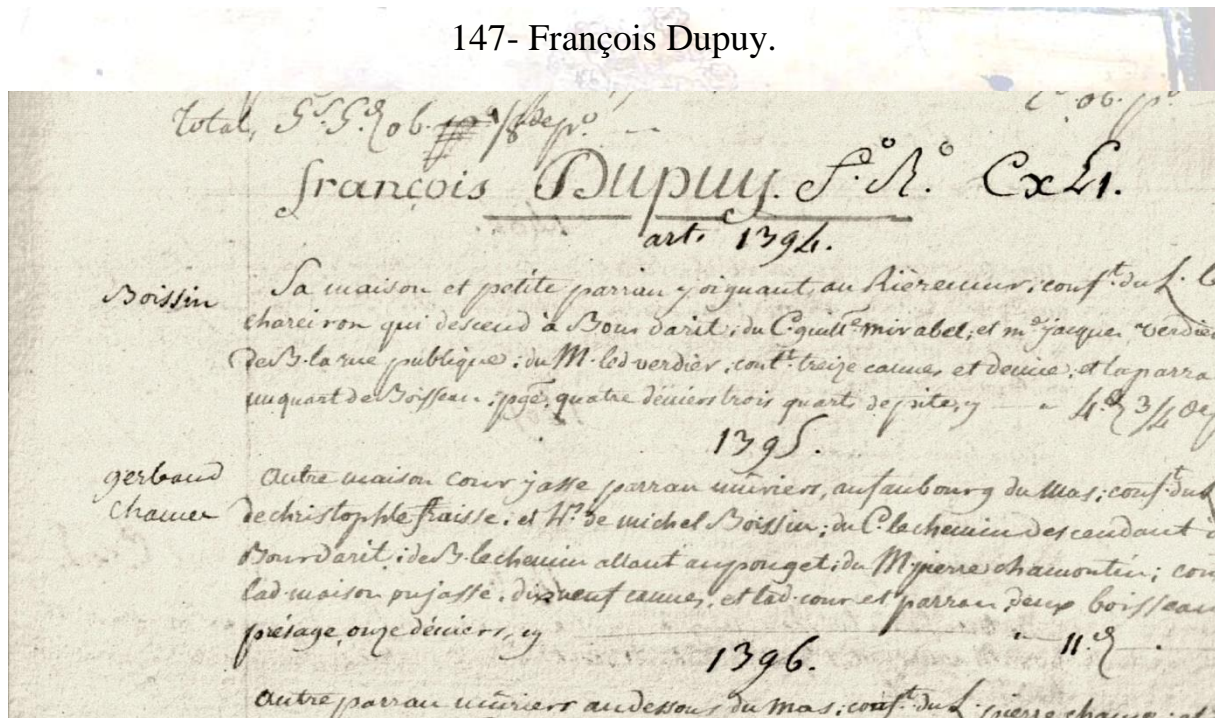 147- François Dupuy.
Total,
françois Dupuy. f.° R.° CxLI.
art. 1394.
Boissin
Sa maison et petite parran joignant, au Rièremur; conf.t du L.
chareiron qui descend à Bourdarit; du C. guill.e mirabel; et m.e jacques verdier
de B. la rue publique; du M. led verdier, cont.t treize cannes et demie, et la parra
un quart de Boisseau, pgé. quatre déniers trois quart de pite, y 4.d 3/4 de
1395.
gerbaud
chauvet
Autre maison cour jasse parran mûriers, au faubourg du Mas; conf.t du L
de christophle fraisse, et h.rs de michel Boissin; du C. le chemin descendant à
Bourdarit; de B. le chemin allant au pouget; du M pierre chamontin; con
lad maison ou jasse, dixneuf cannes, et lad cour et parran, deux boisseau
présage, onze déniers, cy 11.d
1396.
Autre parran mûriers au dessous du Mas; conf.t du L. pierre